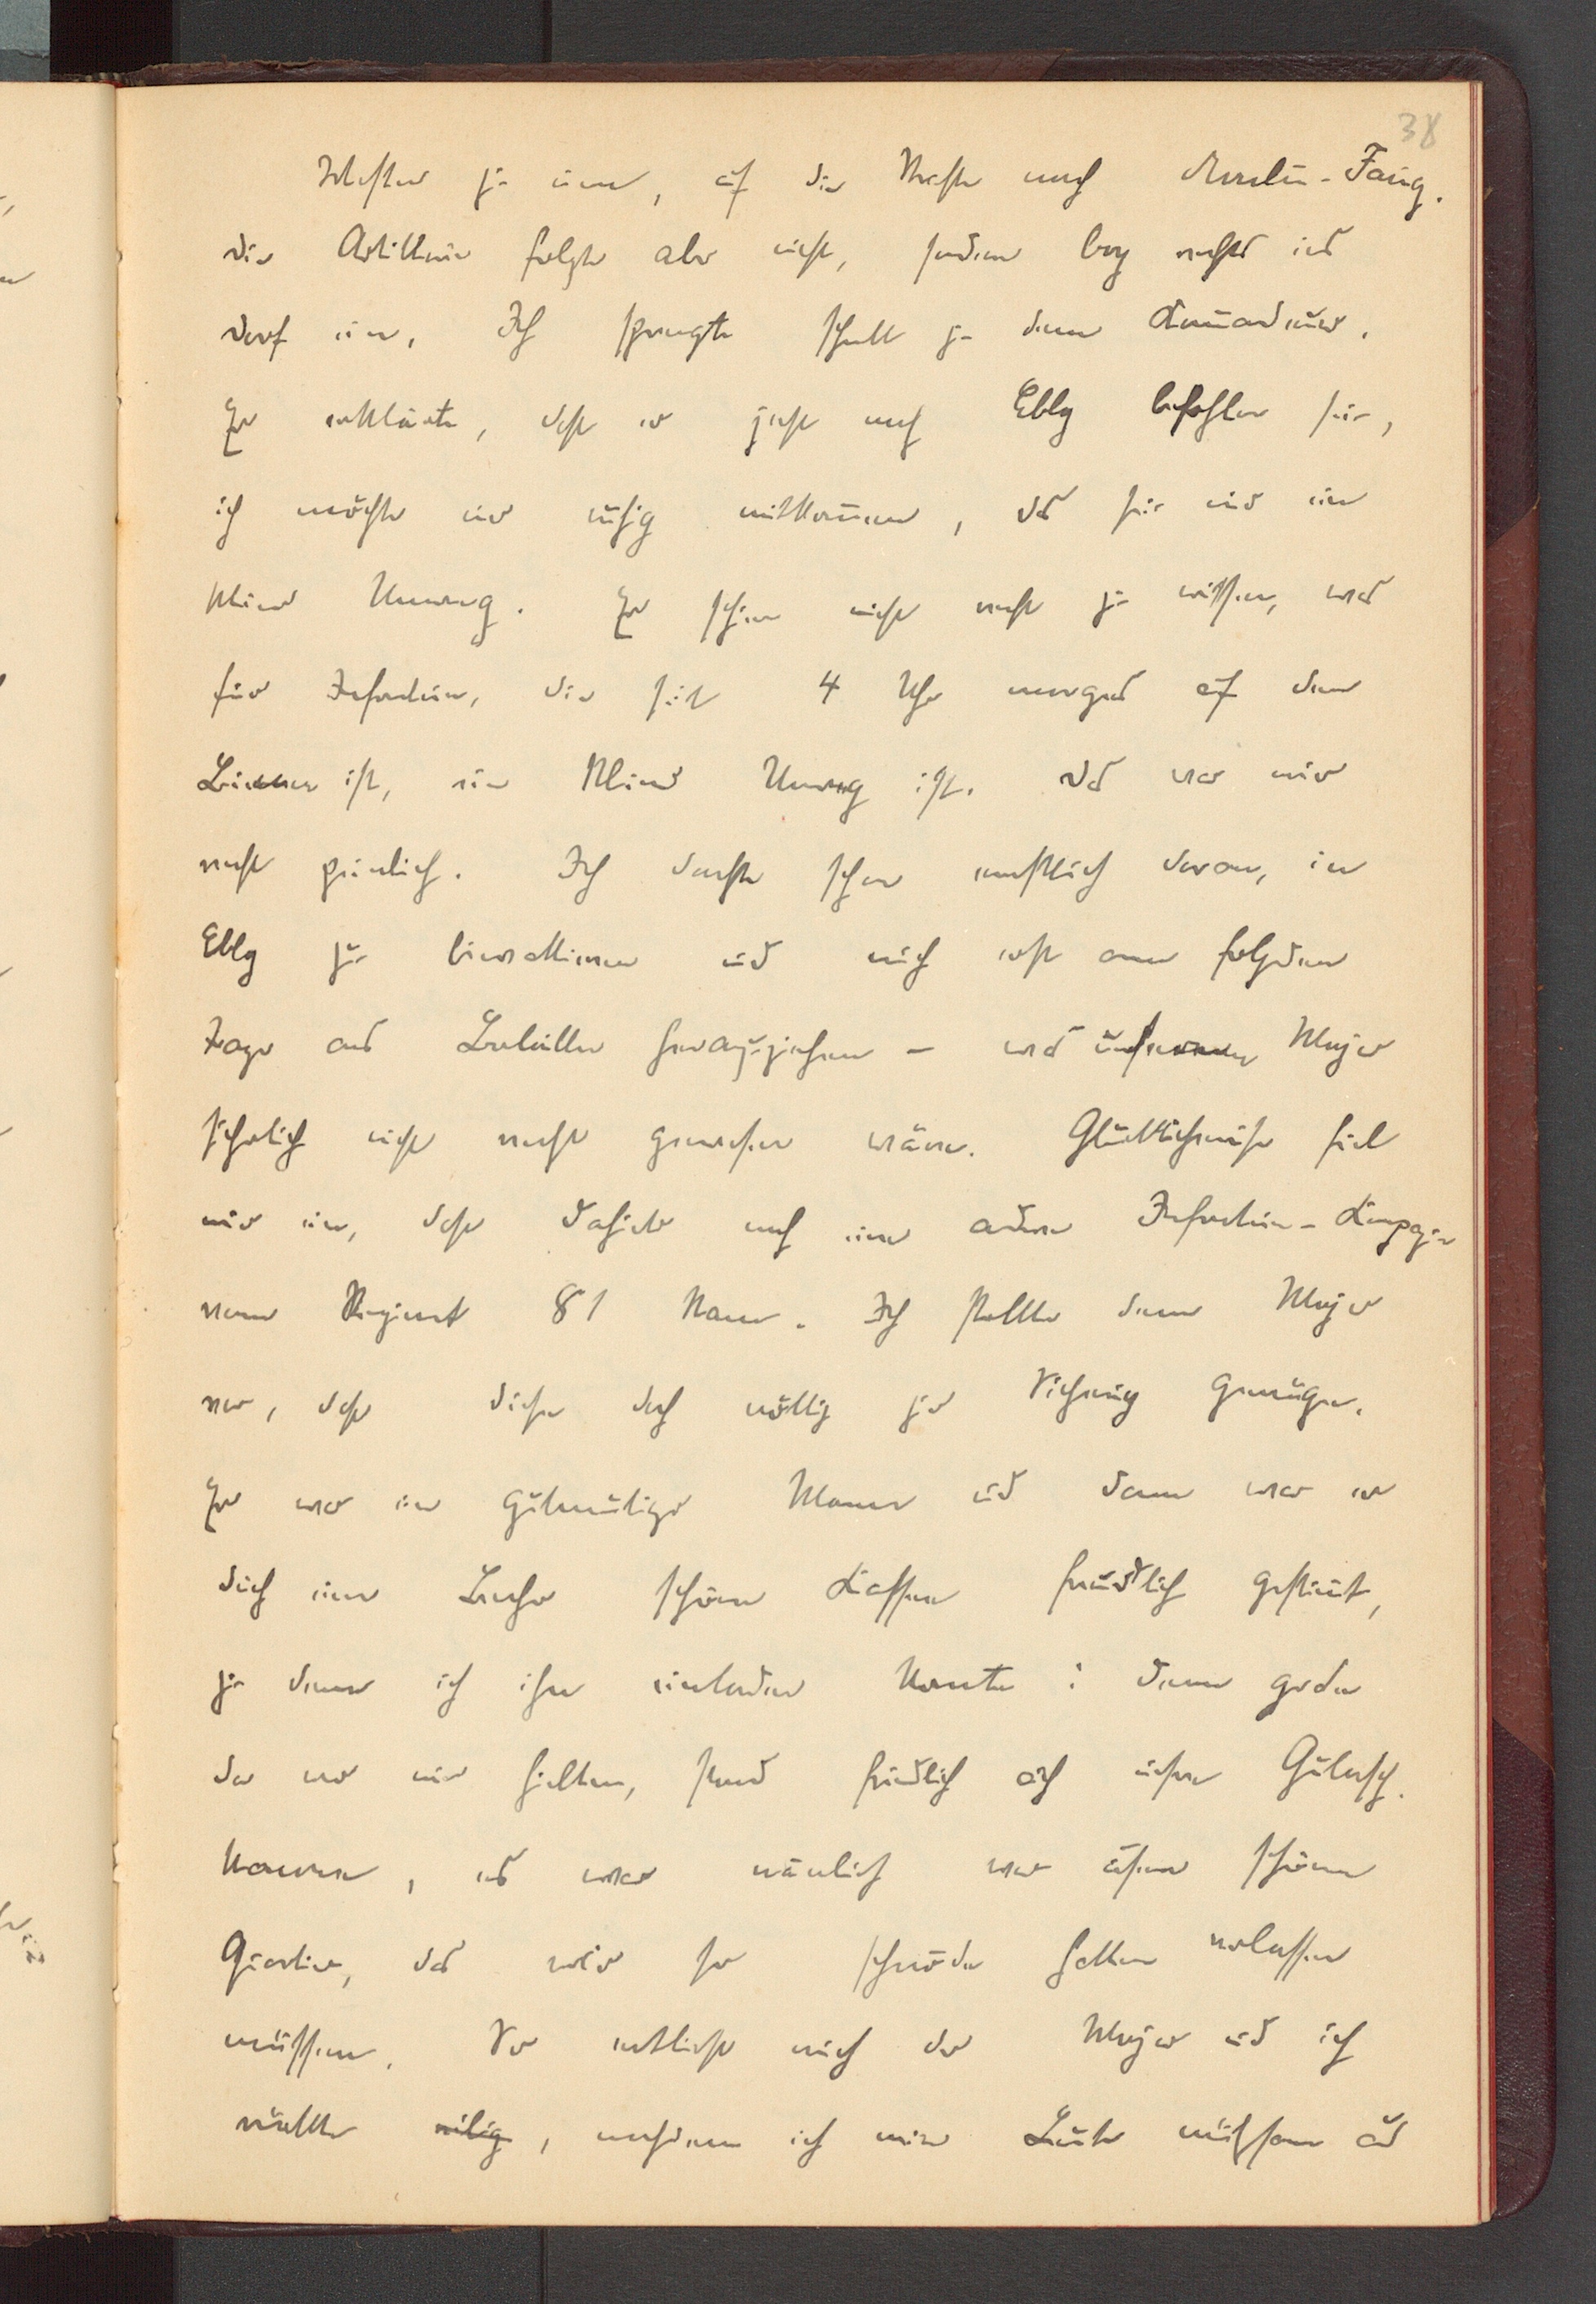 38
Westen zu ein, auf die Straße nach Menlin-Faing.
Die Artillerie folgte aber nicht, sondern bog rechts ins
Dorf ein. Ich sprengte schnell zu dem Kommandeur.
Er erklärte, daß er jetzt nach Ebly befohlen sei,
ich möchte nur ruhig mitkommen, das sei nur ein
kleiner Umweg. Er schien nicht recht zu wissen, was
für Infanterie, die seit 4 Uhr morgens auf den
Beinen ist, ein kleiner Umweg ist. Das war mir
recht peinlich. Ich dachte schon ernstlich daran, in
Ebly zu biwakieren und mich erst am folgenden
Tage ans Bataillon heranzuziehen – was unserem Major
sicherlich nicht recht gewesen wäre. Glücklicherweise fiel
mir ein, daß dahinter noch eine andere Infanterie-Kompagnie
vom Regiment 81 kam. Ich stellte dem Major
vor, daß diese doch völlig zur Sicherung genüge.
Er war ein gutmütiger Mann und dann war er
durch einen Becher schönen Kaffee freundlich gestimmt,
zu dem ich ihn einladen konnte: denn gerade
da wo wir hielten, stand friedlich auch unsere Gulasch-
kanone, es war nämlich vor unserem schönen
Quartier, das wir so schnöde hatten verlassen
müssen. So entließ mich der Major und ich
rückte eilig, nachdem ich meine Leute mühsam aus